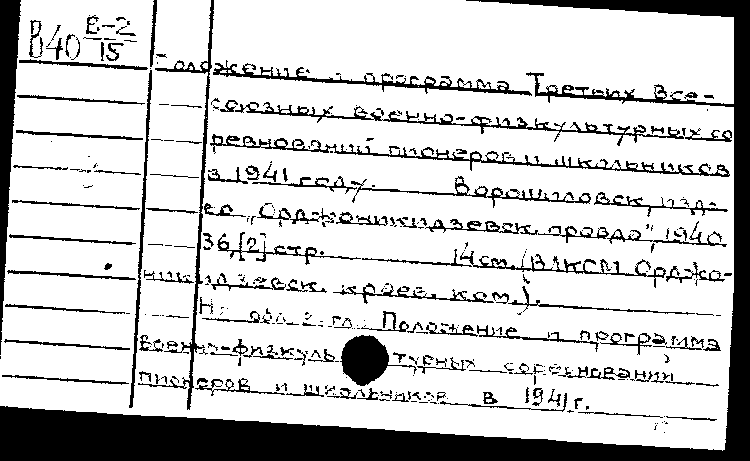 В40 Е-2/15
Положение и программа Третьих Все-
союзных военно-физкультурных со
ревнований пионеров и школьников
в 1941 году. Ворошиловск, изд-
во „Орджоникидзевск. правда", 1940
36,[2] стр. 14 см. (ВЛКСМ Орджо-
никидзевск. краев. ком.).
На обл. загл.: Положение и программа
военно-физкультурных соревнований
пионеров и школьников в 1941 г.